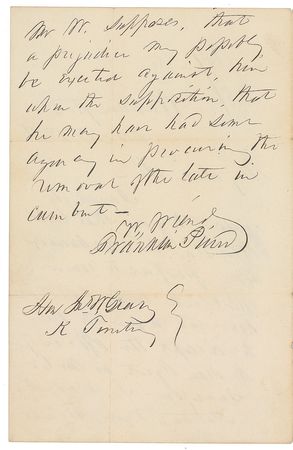 Mr W. supposes, that
a prejudice may possibly
be excited against him
upon the supposition, that
he may have had some
agency in procuring the
removal of the late in
cumbent —
Yr friend
Franklin Pierce
Hon Jno W Geary
K Territy